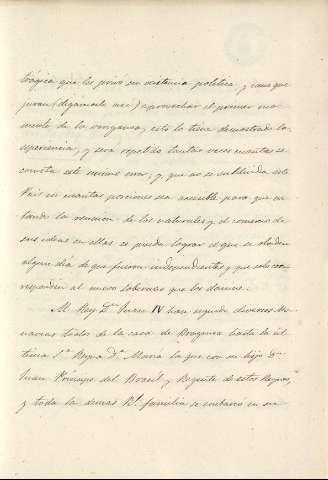 trágica que los privó su existencia politica, y como que
juran (digamoslo así) aprovechar el primer mo-
mento de la venganza; esto lo tiene demostrado la
esperiencia, y será repetido tantas veces cuantas se
cometa este mismo error; y que no se subdivida este
Pais en cuantas porciones sea accesible para que evi-
tando la reunion de los naturales y el comercio de
sus ideas en ellas se pueda lograr el que se olviden
algun dia de que fueron independientes y que solo cor-
responden al nuevo soberano que los domine.
Al Rey Dn. Juan IV han seguido diversos Mo-
narcas todos de la casa de Braganza hasta la ul-
tima Sra. Reyna Da. Maria la que con su hijo Dn.
Juan Principe del Brasil y Regente de estos Reynos,
y toda la demas Rl. familia se embarcó en su